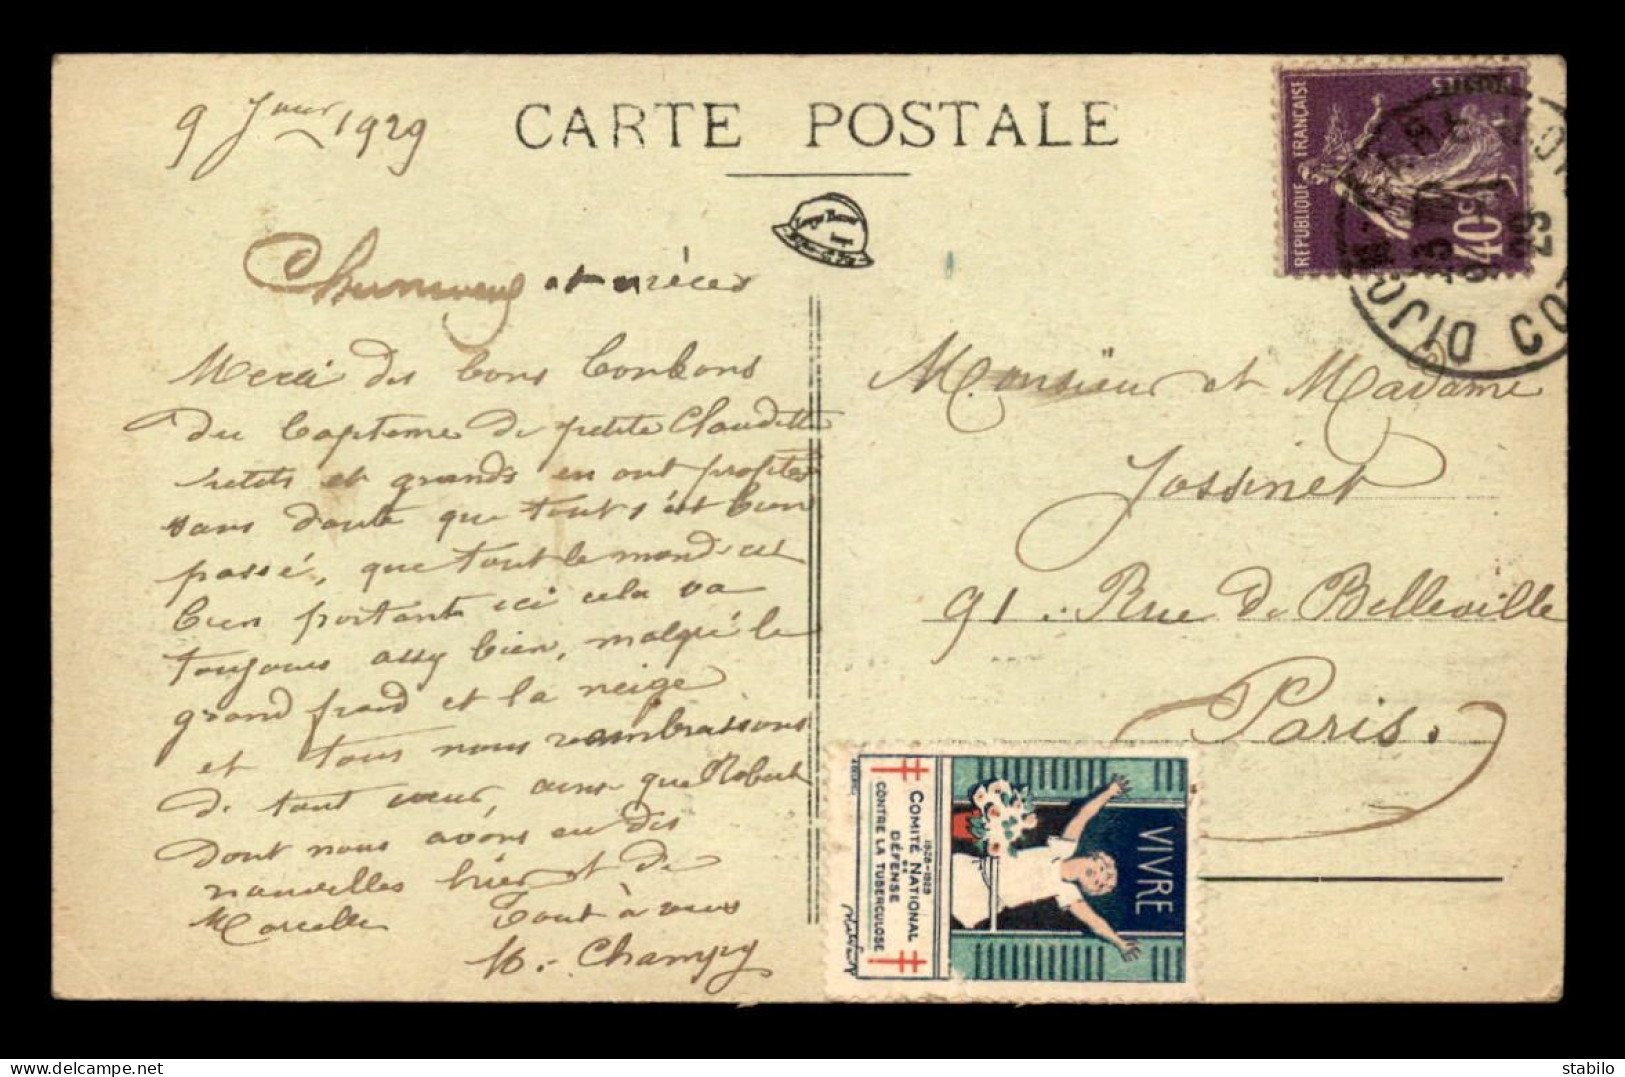 9 Janvier 1929
CARTE POSTALE
REPUBLIQUE FRANÇAISE
POSTES
40c
DIJON
COTE D'OR
et nièces
Merci des bons bonbons
du baptême de petite Claudette
petits et grands en ont profités
sans doute que tout s'est bien
passé, que tout le monde est
bien portants ici cela va
toujours assy bien, malgré le
grand froid et la neige
et tous nous vous embrassons
de tout cœur, ainsi que Robert
dont nous avons eu des
nouvelles hier et de
Marcelle Tout à vous
M. Champy
Monsieur et Madame
Jossinet
91. Rue de Belleville
Paris.
1928-1929
COMITÉ NATIONAL
DE
DÉFENSE
CONTRE LA TUBERCULOSE
VIVRE
© delcampe.net
stabilo